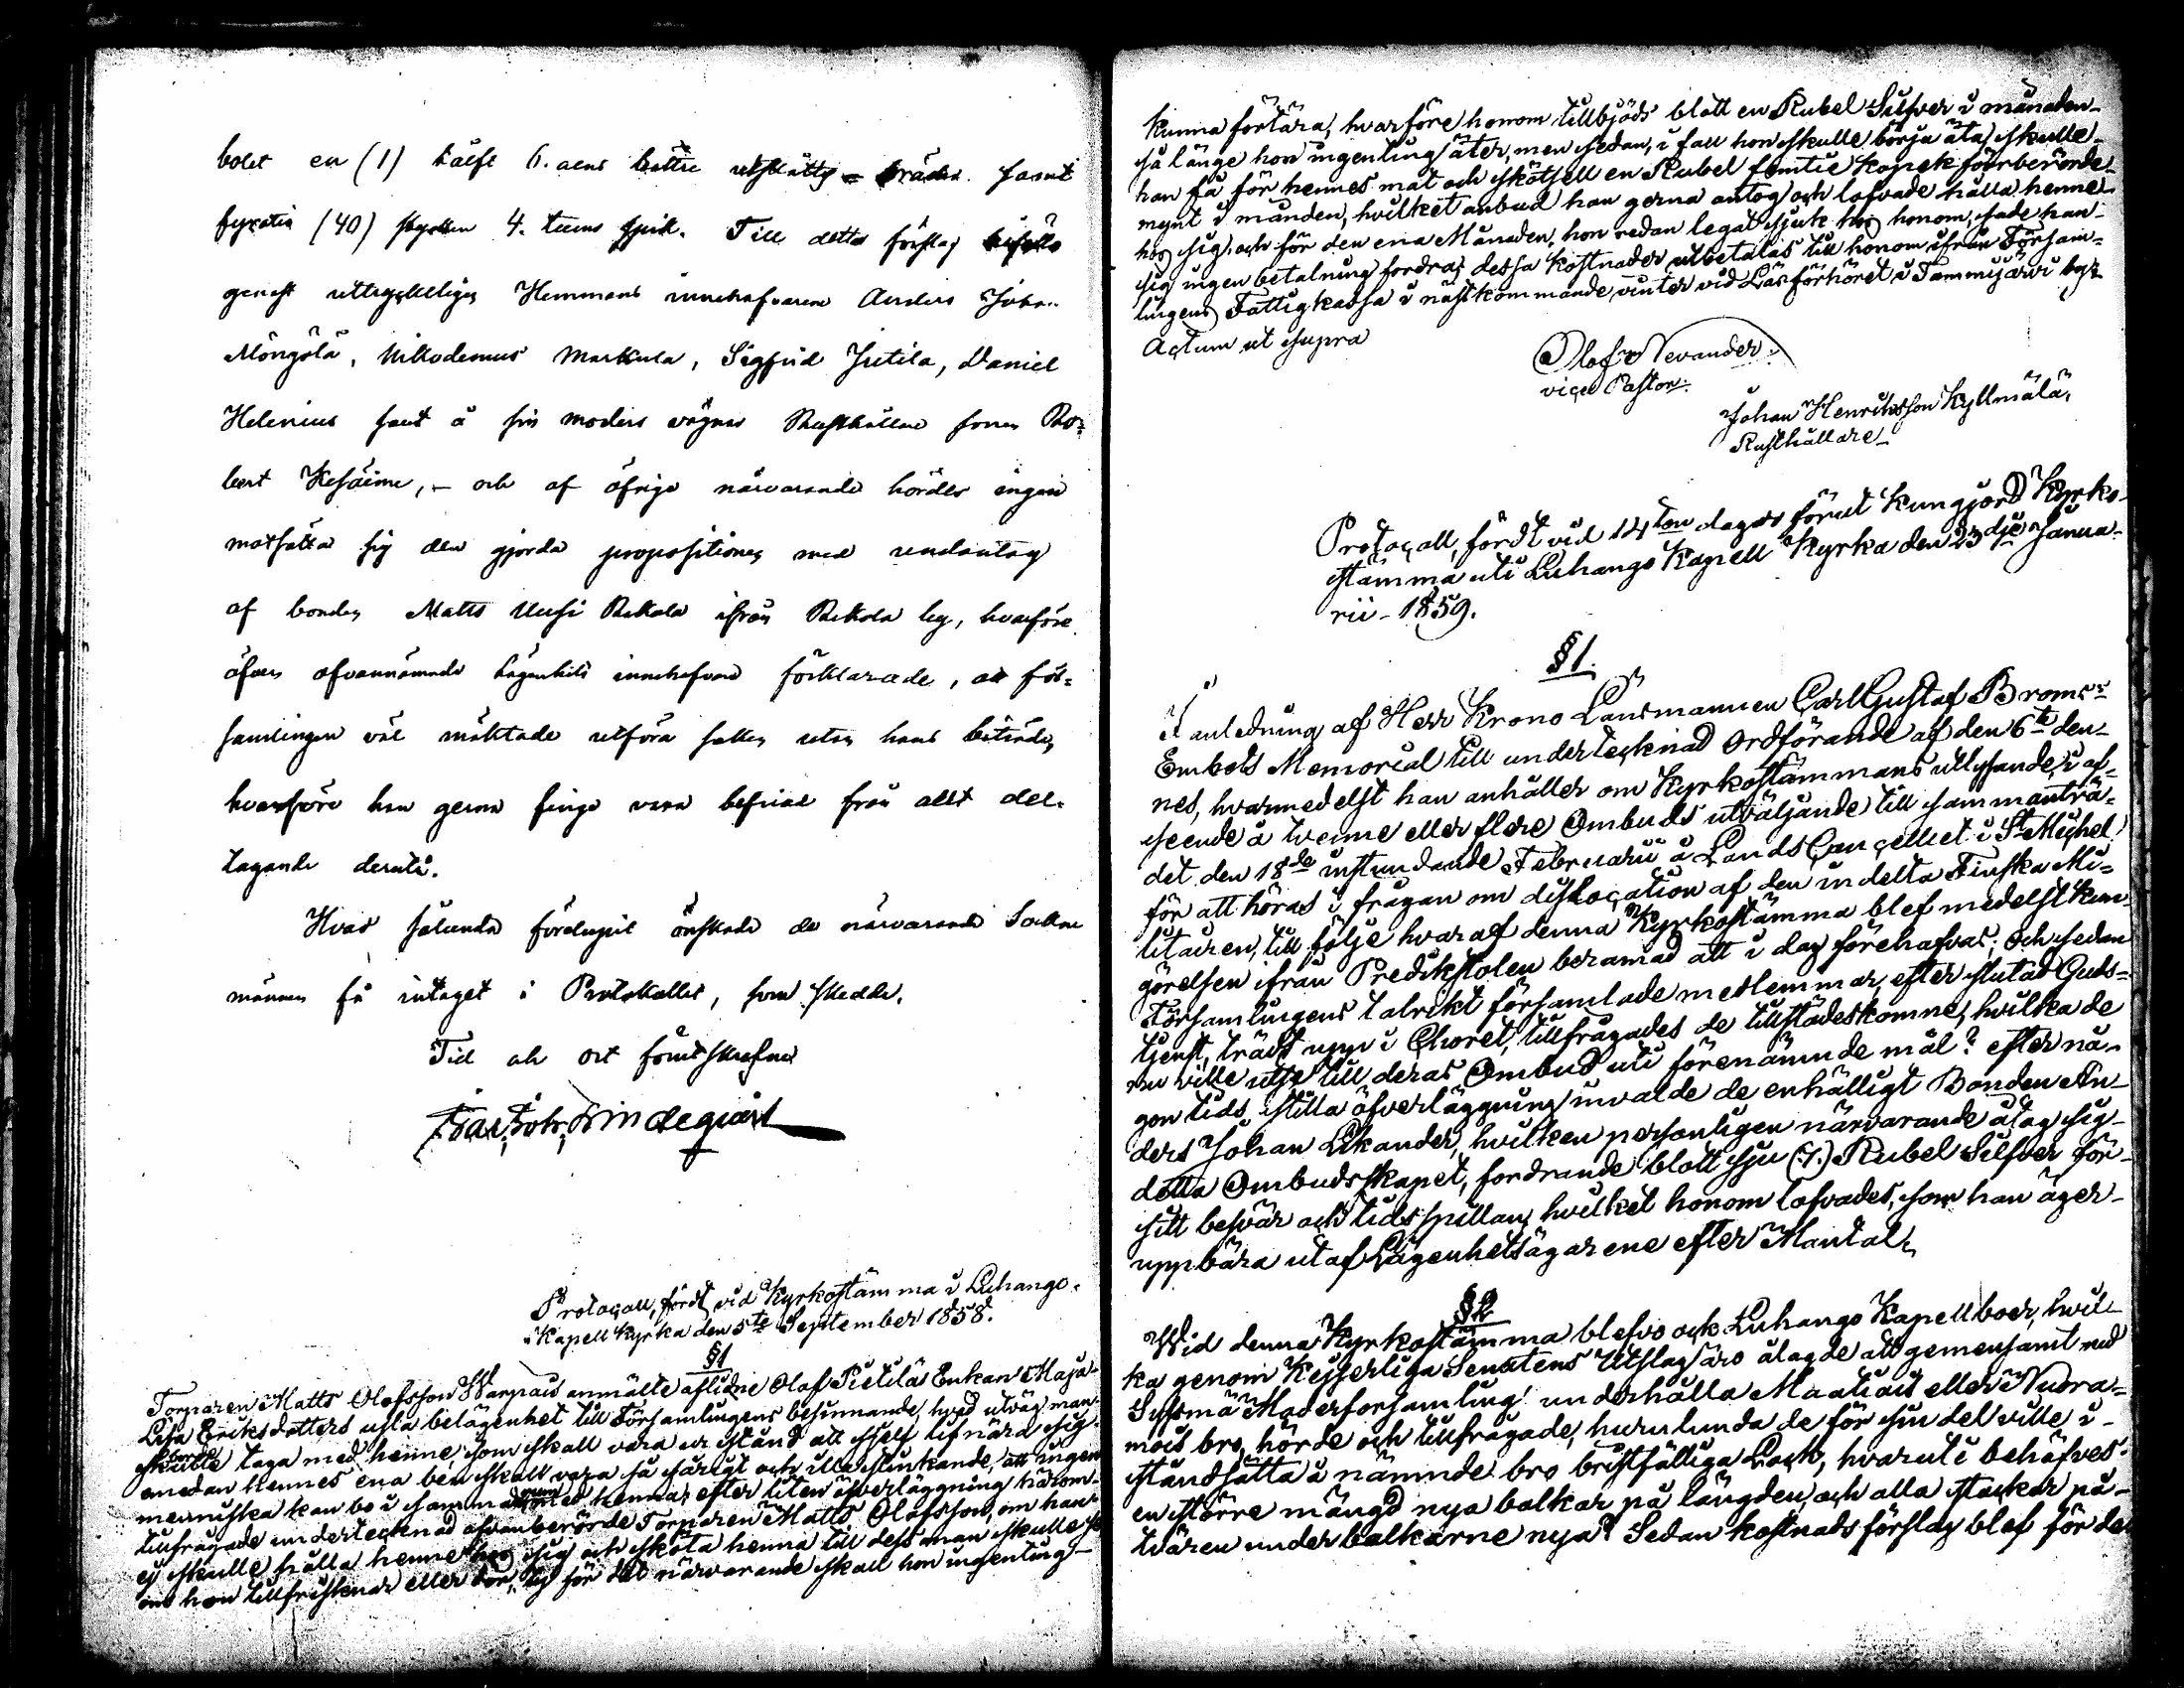 bolet en (1) tålft 6. alns bräder samt
fyratio (40) stycken 4. tums spik. Till detta förslag
genast Hemmans innehafvarena Anders Johan
Mongola, Nikodemus Markula, Sigfrid Jutila, Daniel
Helenius samt å sin moders vägnar Rusthållare sonen Ro-
bert Kesäime, – och af öfrige närvarande hördes ingen
motsätta sig den gjorda propositionen med undantag
af bonden Matts Uusi Rekola ifrån Rekola by, hvarföre
äfven ofvannämnde lägenhets innehafvare förklarade, att för-
samlingen väl mäktade utföra saken utan hans biträde,
hvarföre han gerna finge vara befriad från allt del-
tagande deruti.
Hvad sålunda förelupit önskade de närvarande Socken
männen få intaget i Protokollet, som skedde.
Tid och ort förutskrefne
Lindequist
Protocoll, fördt vid Kyrkostämma i Luhango
Kapell Kyrka den 5te September 1858.
§1
Torparen Matts Olofsson Warpais anmälte aflidne Olof Pietiläs Enkan Maja
Lisa Eriksdotters usla belägenhet till Församlingens besinnande, hvad utväg man
borde taga med henne, som skall vara ur stånd att sjelf lifnära sig
emedan hennes ena ben skall vara så sårigt och illa stinkande, att ingen
menniska kan bo i samma rum med henne; efter liten öfverläggning härom
tillfrågade undertecknad ofvanberörde Torparen Matts Olofsson, om han
ej skulle hålla henne hos sig och sköta henna till dess man skulle se
om hon tillfrisknar eller dör, ty för det närvarande skall hon ingenting
kunna förtära, hvarföre honom tillbjöds blott en Rubel Silfver i månaden
så länge hon ingenting äter, men sedan, i fall hon skulle börja äta, skulle
han få för hennes mat och skötsell en Rubel femtie Kopek förberörde
mynt i månden, hvilket anbud han gerna antog och lofvade hålla henne
hos sig, och för den ena Månaden, hon redan legat sjuk hos honom, sade han
sig ingen betalning fordra; dessa kostnader utbetalas till honom ifrån Försam-
lingens Fattigkassa i nästkommande vinter vid Läsförhöret i Tammijärvi by
Actum ut supra
Olof Nevander
vice Pastor.
Johan Henriksson Kyllmälä,
Rusthållare
Protocoll, fördt vid 14ton dagars förut kungjord Kyrko-
stämma uti Luhango Kapell Kyrka den 23dje Janua-
rii 1859.
§1.
I anledning af Herr Krono Länsmannen Carl Gustaf Broms
Embets Memorial till undertecknad Ordförande af den 6te den-
nes, hvarmedelst han anhåller om Kyrkostämmans utlysande, i af-
seende å tvenne eller flere Ombuds utväljande till sammanträ-
det den 18de instundande Februarii å Lands Cancelliet i St Michel
för att höras i frågan om dislocation af den indelta Finska Mi-
litairen, till följe hvaraf denna Kyrkostämma blef medelst kun-
görelsen ifrån Predikstolen beramad att i dag förehafvas; Och sedan
Församlingens talrikt församlade medlemmar, efter slutad Guds-
tjenst, trädt upp i Choret, tillfrågades de tillstädeskomne, hvilka de
nu ville utse till deras Ombud uti förenämnde mål? efter nå-
gon tids stilla öfverläggning invalde de enhälligt Bonden An-
ders Johan Likander, hvilken personligen närvarande åtog sig
detta Ombudsskapet, fordrande blott sju (7.) Rubel Silfver för
sitt besvär och tidsspillan, hvilket honom lofvades, som han äger
uppbära utaf Lägenhetsägarene efter Mantal.
§2
Wid denna Kyrkostämma blefvo ock Luhango Kapellboer, hvil-
ka genom Kejserliga Senatens Utslag äro ålagde att gemensamt med
Sysmä Moderforsamling underhålla Maatiais eller Nuora-
mois bro, hörde och tillfrågade, hurulunda de för sin del ville i
ståndsätta i nämnde bro bristfälliga Lock, hvaruti behöfves
en större mängd nya balkar på längden och alla stockar på
tvären under balkarne nya? Sedan kostnadsförslag blef för de